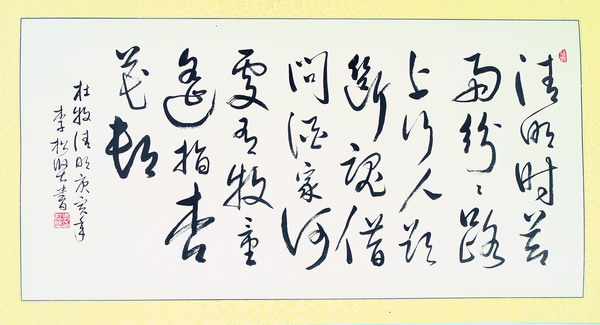 清明时节
雨纷〻路
上行人欲
断魂借
問酒家何
處有牧童
遥指杏
花邨
杜牧清明庚寅年
李松书